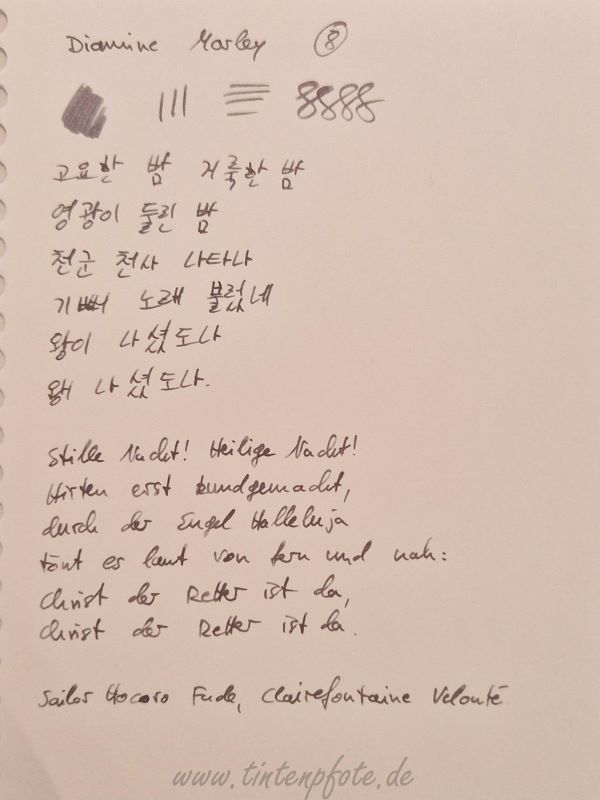 Diamine Marley 8
8888
고요한 밤 거룩한 밤
영광이 둘린 밤
천군 천사 나타나
기뻐 노래 불렀네
왕이 나셨도다
왕이 나셨도다.
Stille Nacht! Heilige Nacht!
Hirten erst kundgemacht,
durch der Engel Halleluja
tönt es laut von fern und nah:
Christ der Retter ist da,
Christ der Retter ist da.
Sailor Hocoro Fude, Clairefontaine Velouté
www.tintenpfote.de